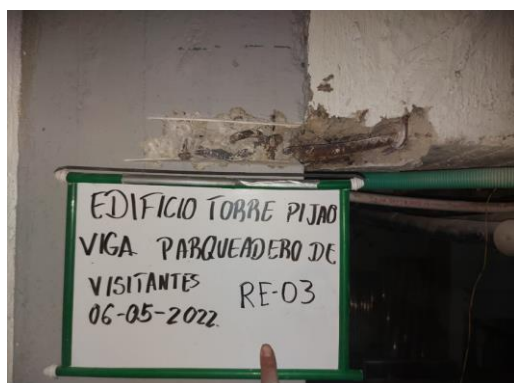 EDIFICIO TORRE PIJAO
VIGA PARQUEADERO DE
VISITANTES RE-03
06-05-2022.